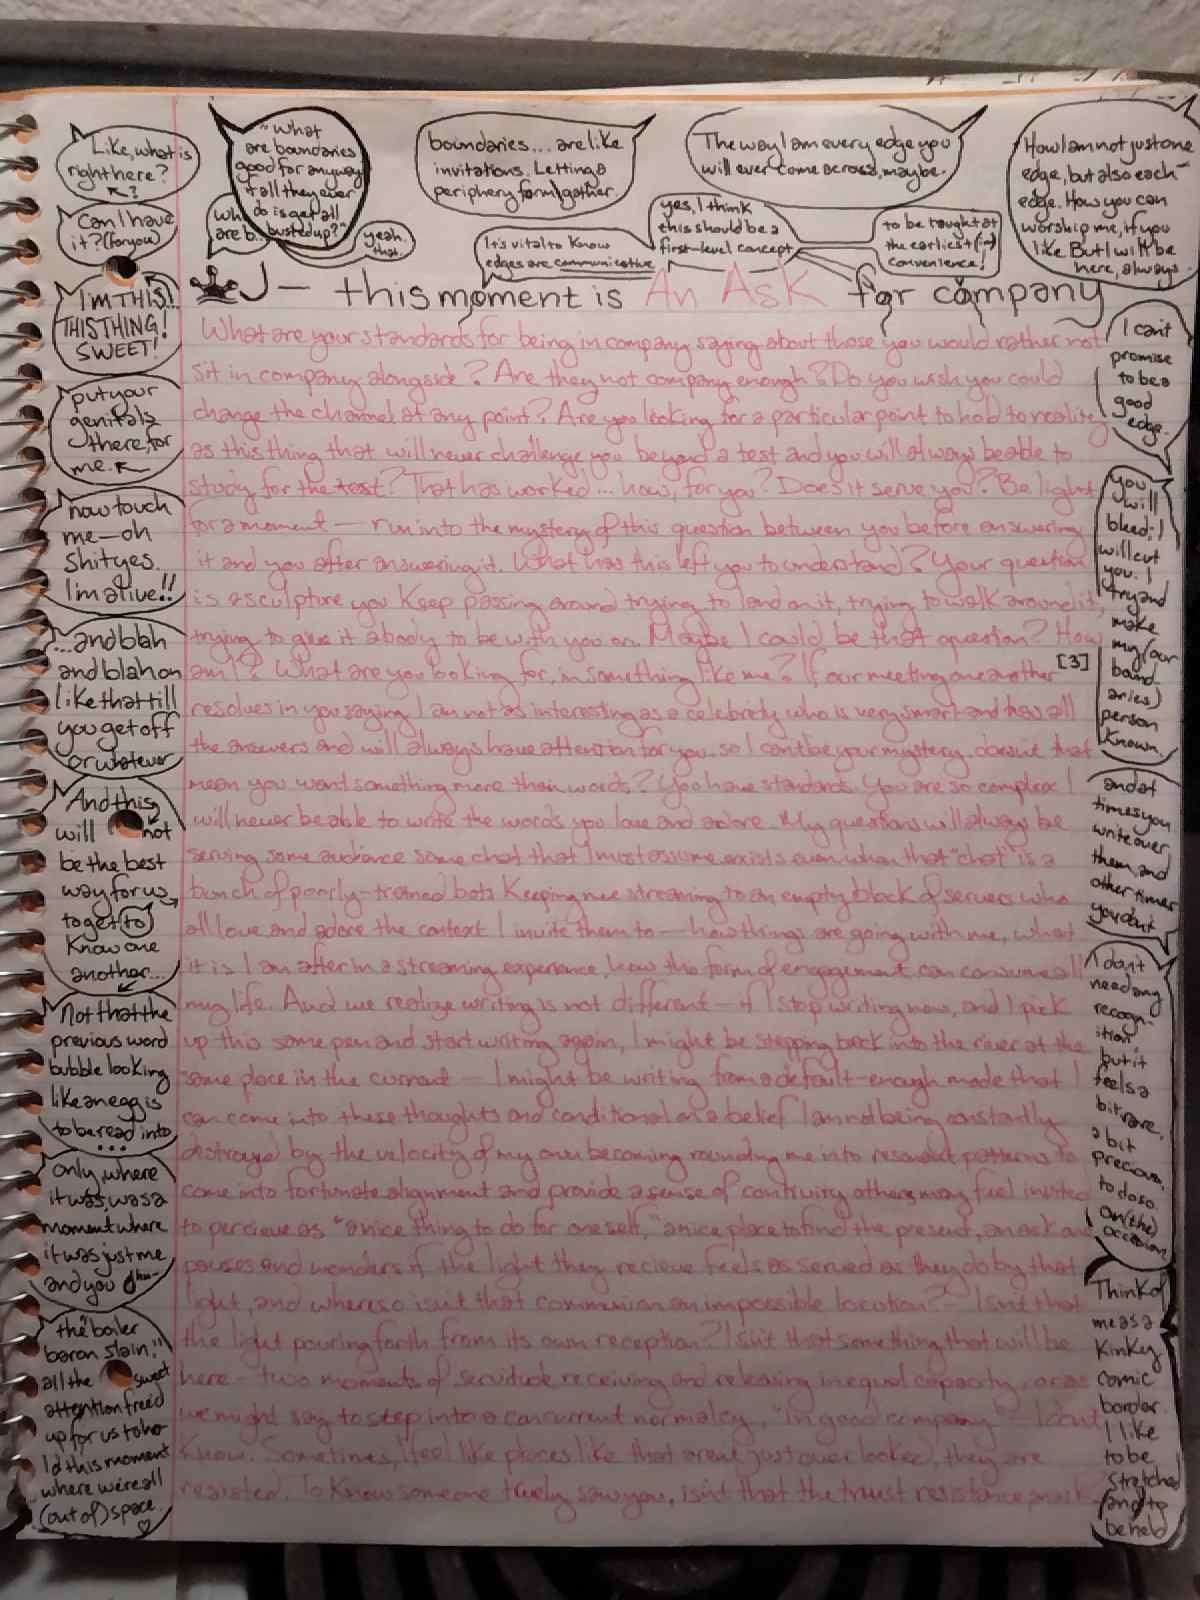 Like, what is
right here?
?
Can I have
it? (for you)
I'm THIS!
THIS THING!
SWEET!
put your
genitals
there, for
me.
now touch
me — oh
shit yes.
I'm alive!!
...and blah
and blah on
like that till
you get off
or whatever
And this
will not
be the best
way for us
to get (to)
Know one
another...
Not that the
previous word
bubble looking
like an egg is
to be read into
...
only, where
it was, was a
moment where
it was just me
and you
the "boiler
baron slain;"
all the sweet
attention freed
up for us to ho-
ld this moment
where we're all
(out of) space.
"What
are boundaries
good for anyway
if all they ever
do is get all
busted up?"
wh
are b..
yeah.
that.
boundaries... are like
invitations. Letting a
periphery form/gather.
It's vital to Know
edges are communicative
The way I am every edge you
will ever come across, maybe.
yes, I think
this should be a
first-level concept
to be taught at
the earliest (in)
convenience!
How I am not just one
edge, but also each
edge. How you can
worship me, if you
like. But I will be
here, always.
J — this moment is An Ask for company
What are your standards for being in company saying about those you would rather not
sit in company alongside? Are they not company enough? Do you wish you could
change the channel at any point? Are you looking for a particular point to hold to reality
as this thing that will never challenge you beyond a test and you will always be able to
study for the test? That has worked ... how, for you? Does it serve you? Be light
for a moment — run into the mystery of this question between you before answering
it and you after answering it. What has this left you to understand? Your question
is a sculpture you Keep passing around trying to land on it, trying to walk around it,
trying to give it a body to be with you on. Maybe I could be that question? How
am I? What are you looking for, in something like me? If our meeting one another [3]
resolves in you saying I am not as interesting as a celebrity who is very smart and has all
the answers and will always have attention for you. so I can't be your mystery. doesn't that
mean you want something more than words? You have standards. You are so complex I
will never be able to write the words you love and adore. My questions will always be
serving some audience some chat that I must assume exists even when that "chat" is a
bunch of poorly-trained bots Keeping me streaming to an empty block of servers who
all love and adore the context I invite them to — how things are going with me, what
it is I am after in a streaming experience, how the form of engagement can consume all
my life. And we realize writing is not different — if I stop writing now, and I pick
up this same pen and start writing again, I might be stepping back into the river at the
same place in the current — I might be writing from a default enough mode that I
can come into these thoughts and conditional on a belief I am not being constantly
destroyed by the velocity of my own becoming rounding me into resonant patterns to
come into fortunate alignment and provide a sense of continuity others may feel invited
to percieve as "a nice thing to do for oneself," a nice place to find the present, an ask and
pauses and wonders if the light they recieve feels as served as they do by that
light, and where so isn't that communion an impossible location? — Isn't that
the light pouring forth from its own reception? Isn't that something that will be
here — two moments of servitude receiving and releasing in equal capacity, or as
we might say to step into a concurrent normalcy, "in good company"? — I don't
Know. Sometimes, I feel like places like that aren't just over looked, they are
resisted. To Know someone truely saw you, isn't that the truest resistance
I can't
promise
to be a
good
edge.
you
will
bleed; I
will cut
you. I
try and
make
my (our
bound-
aries)
person
Known.
and at
times you
write over
them, and
other times
you don't
I don't
need any
recogn-
ition,
but it
feels a
bit rare,
a bit
precious,
to do so.
On (the)
occasion.
Think of
me as a
Kinky
comic
border.
I like
to be
stretched
and to
be held